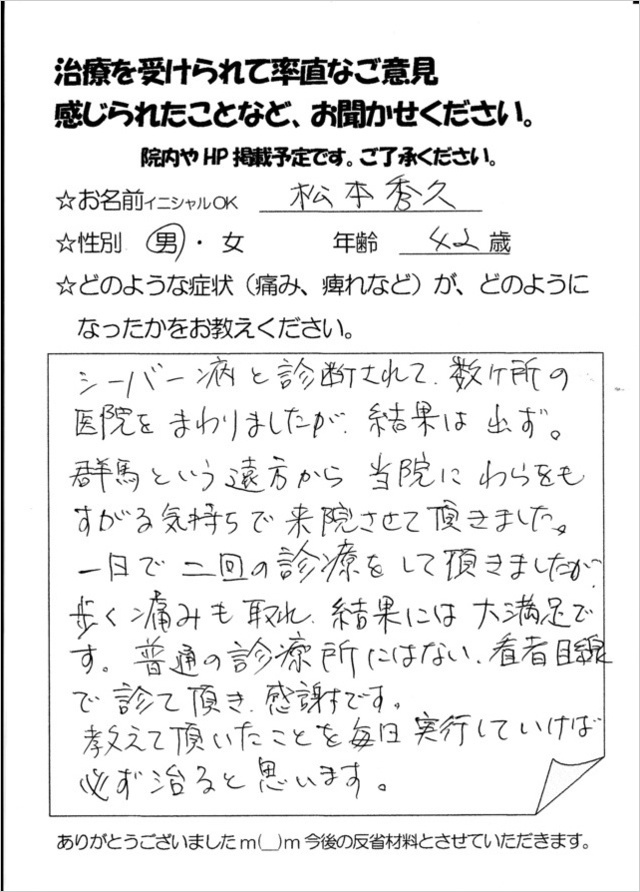 治療を受けられて率直なご意見
感じられたことなど、お聞かせください。
院内やHP掲載予定です。ご了承ください。
☆お名前イニシャルOK 松本秀久
☆性別 男・女 年齢 42歳
☆どのような症状（痛み、痺れなど）が、どのように
なったかをお教えください。
シーバー病と診断されて、数ヶ所の
医院をまわりましたが、結果は出ず。
群馬という遠方から当院にわらをも
すがる気持ちで来院させて頂きました。
一日で二回の診療をして頂きましたが、
歩く痛みも取れ、結果には大満足で
す。普通の診療所にはない、看者目線
で診て頂き、感謝です。
教えて頂いたことを毎日実行していけば
必ず治ると思います。
ありがとうございましたm(__)m今後の反省材料とさせていただきます。